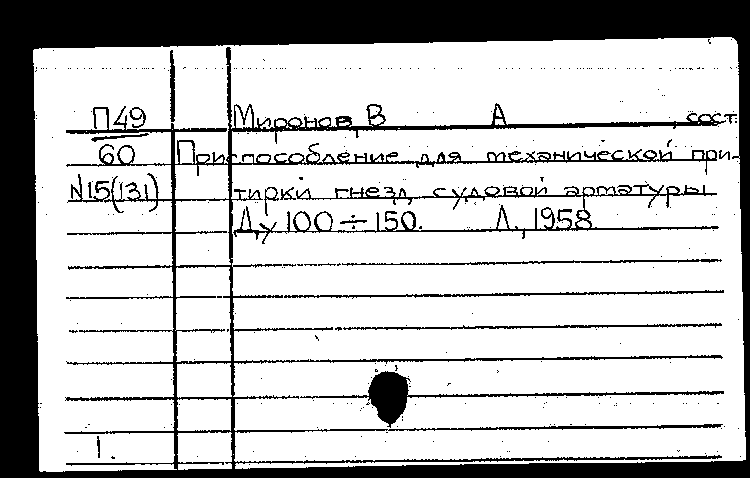 П49 Миронов, В А , сост.
60 Приспособление для механической при-
N15(131) тирки гнезд судовой арматуры
Ду 100÷150. Л., 1958
1.